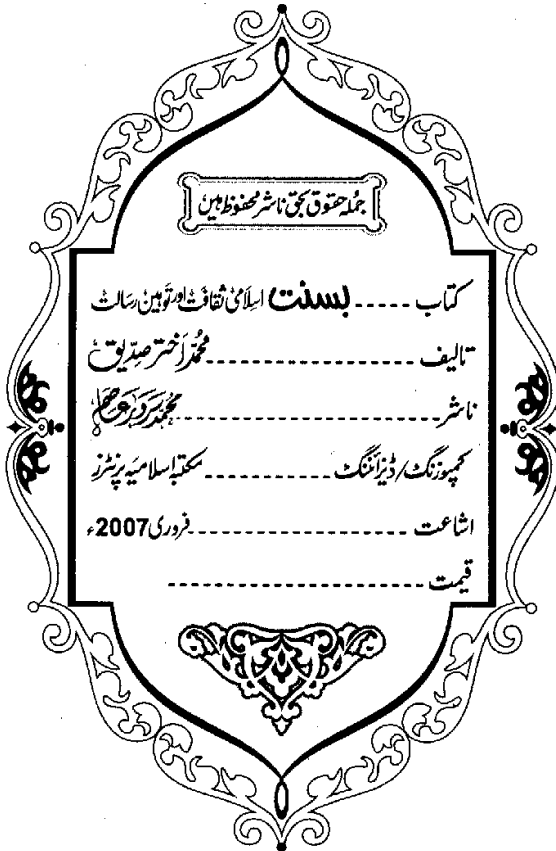 جملہ حقوق بحق ناشر محفوظ ہیں
کتاب ----- بسنت اسلامی ثقافت اور توہین رسالت
تالیف ----------------- محمد اختر صدیق
ناشر ------------------- محمد سرور عاصم
کمپوزنگ/ڈیزائننگ ---------- مکتبہ اسلامیہ پرنٹرز
اشاعت ------------------ فروری 2007ء
قیمت --------------------